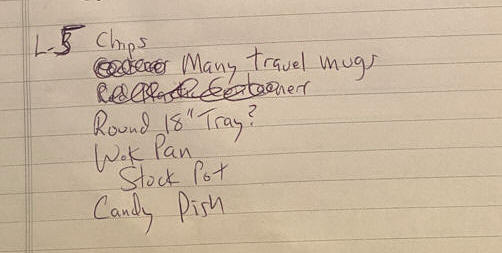 L-5 Chips
Many travel mugs
Round 18" Tray?
Wok Pan
Stock Pot
Candy Dish